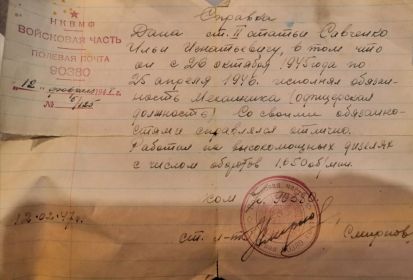 Справка
НКВМФ
ВОЙСКОВАЯ ЧАСТЬ
ПОЛЕВАЯ ПОЧТА
90380
12
№ 6/125
Дана ст. II статьи Савченко
Илье Игнатьевичу, в том что
он с 26 октября 1945 года по
25 апреля 1946. исполнял обязан-
ность Механика (офицерская
должность) Со своими обязанно-
стями справлялся отлично.
Работал на высокомощных дизелях
с числом оборотов 1.650 об/мин.
ком 90380
12.02.47г.
ст. л-т Смирнов